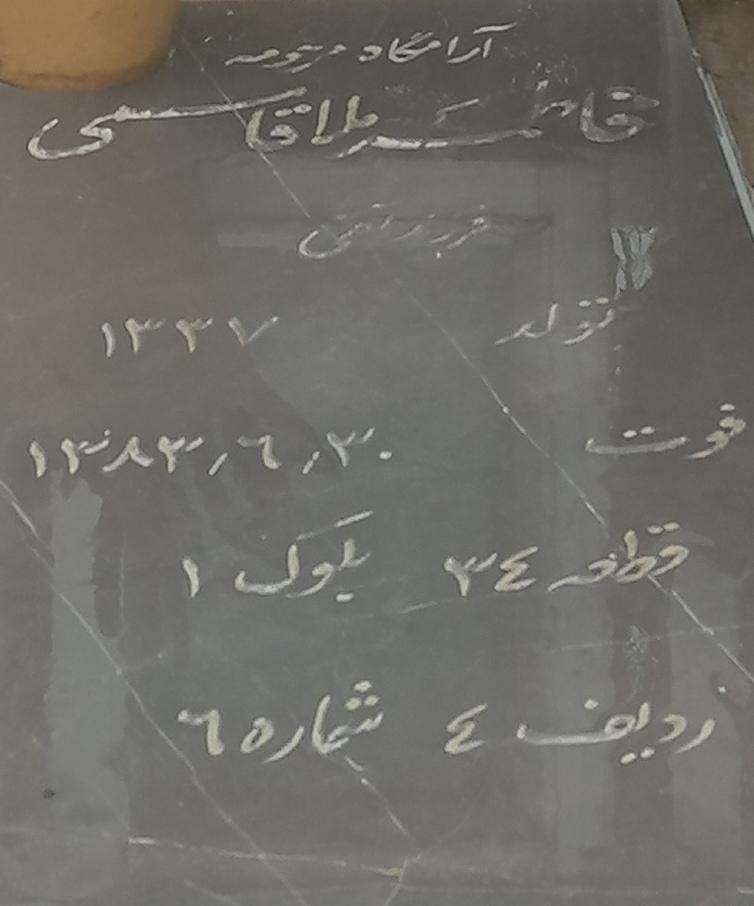 آرامگاه مرحومه
فاطمه ملاقاسمی
فرزند تقی
تولد ۱۳۳۷
فوت ۱۳۸۳٫۶٫۳۰
قطعه ۳٤ بلوک ۱
ردیف ٤ شماره ۶